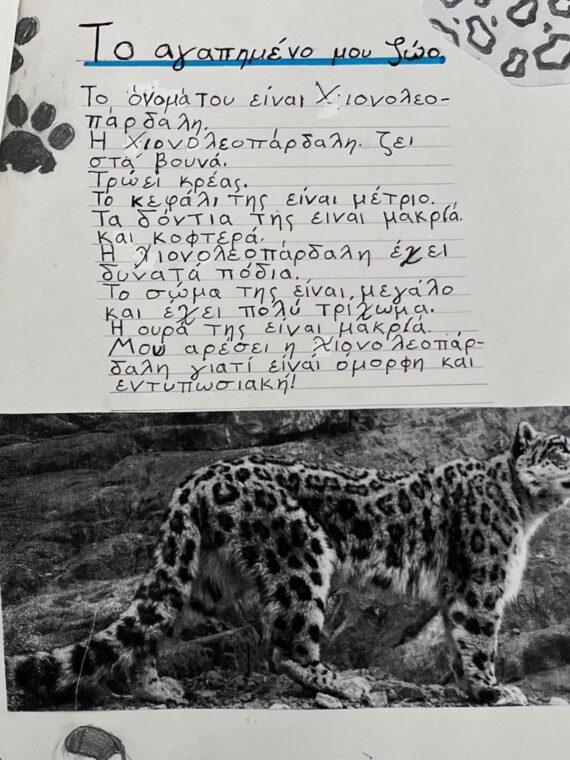 Το αγαπημένο μου ζώο.
Το όνομα του είναι Χιονολεο-
πάρδαλη.
Η Χιονολεοπάρδαλη. ζει
στα βουνά.
Τρώει κρέας.
Το κεφάλι της είναι μέτριο.
Τα δόντια της ειναι μακριά.
και κοφτερά.
Η χιονολεοπάρδαλη έχει
δυνατά πόδια.
Το σώμα της είναι μεγάλο
και έχει πολύ τρίχωμα.
Η ουρά της είναι μακριά
Μου αρέσει η χιονολεοπάρ-
δαλη γιατί είναι όμορφη και
εντυπωσιακή!